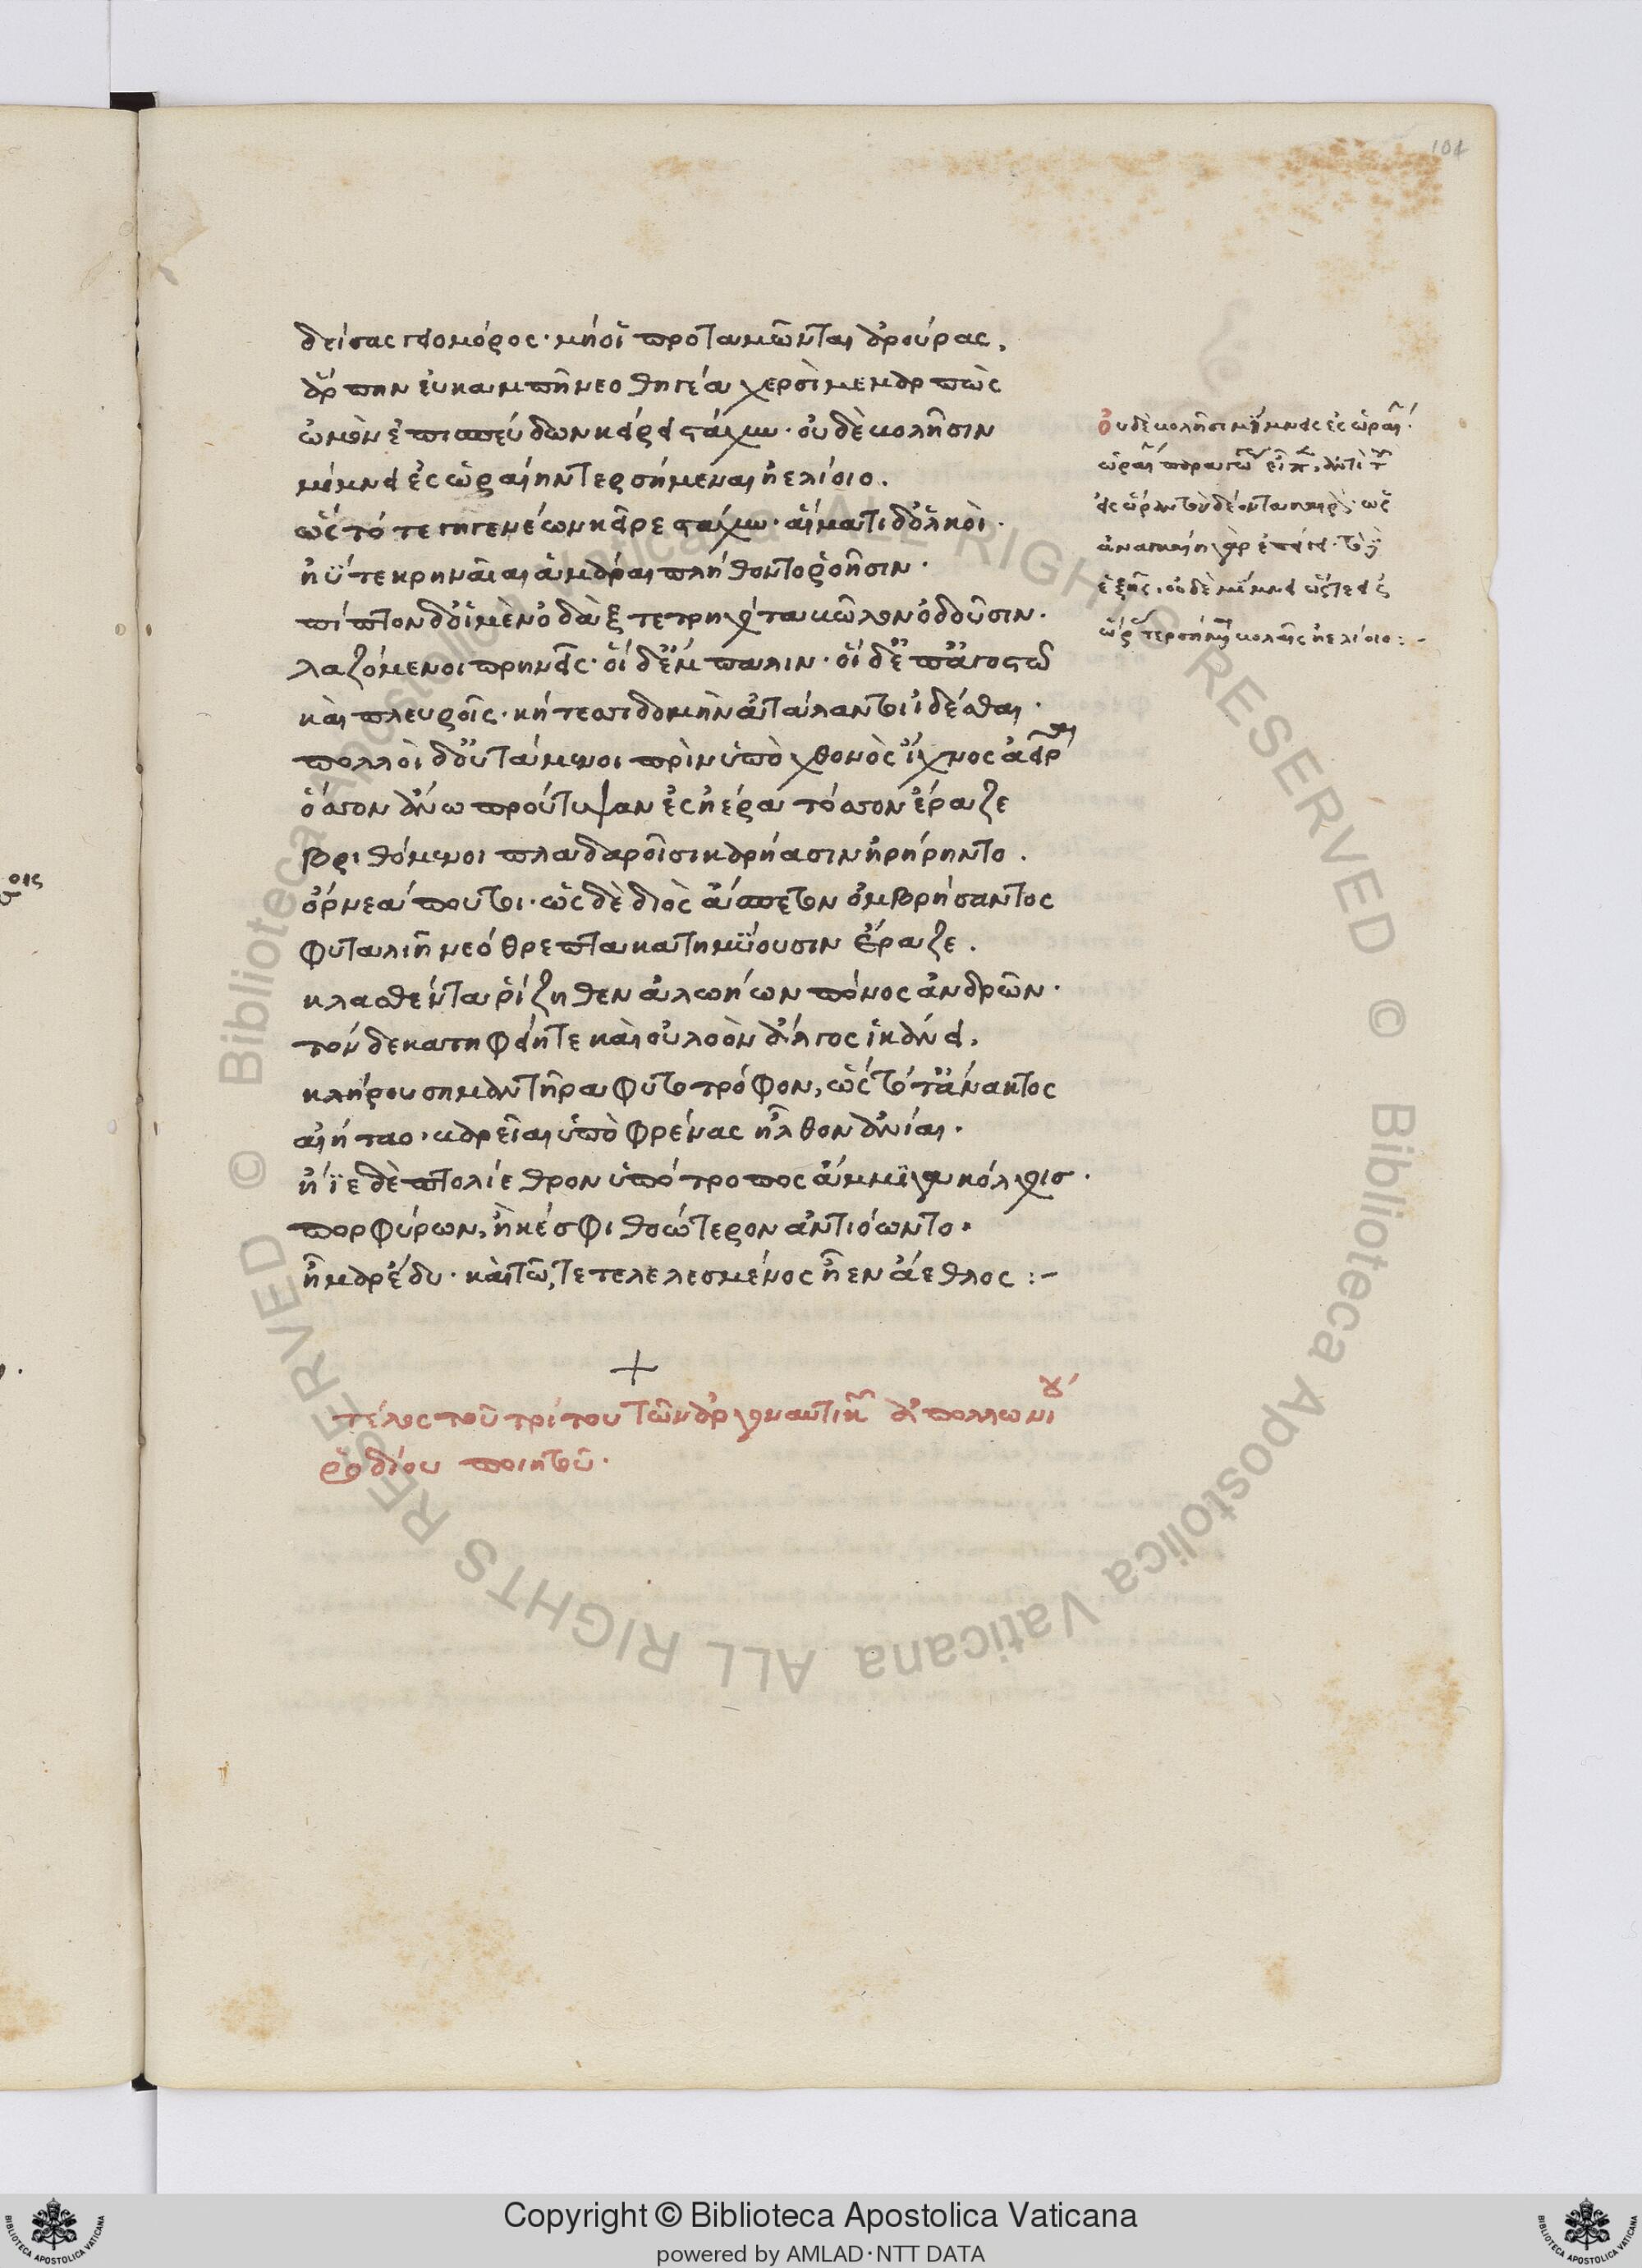 δείσας γειομόρος· μή οἱ προταμῶνται ἀρούρας,
ἅρπην εὐκαμπῆ νεοθηγέα χερσὶ μεμαρπὼς
ὠμὸν ἐπισπεύδων κείρει στάχυν· οὐδὲ βολῆσιν
μίμνει ἐς ὡραίην τερσήμεναι ἠελίοιο.
ὣς τότε γηγενέων κεῖρε στάχυν· αἵματι δ' ὁλκοὶ·
ἠΰτε κρηναῖαι ἀμάραι πλήθοντο ῥοῆσιν·
πίπτον δ' οἱ μὲν ὀδὰξ τετρηχότα βῶλον ὀδοῦσιν·
λαζόμενοι πρηνεῖς· οἱ δ' ἔμπαλιν· οἱ δ' ἐπ' ἀγοστῶ
καὶ πλευροῖς· κήτεσι δομὴν ἀτάλαντοι ἰδέσθαι·
πολλοὶ δ' οὐτάμενοι πρὶν ὑπὸ χθονὸς ἴχνος ἀεῖραι
ὅσσον ἄνω προύτυψαν ἐς ἠέρα τόσσον ἔραζε
βριθόμενοι πλαδαροῖσι καρήασιν ἠρήρηντο.
ὄρνεά που τοι· ὣς δὲ διὸς ἄσπετον ὀμβρήσαντος
φυταλιῆ νεόθρεπτα κατημΰουσιν ἔραζε.
κλασθέντα ῥίζηθεν ἀλωήων πόνος ἀνδρῶν·
τὸν δὲ κατηφείη τε καὶ οὐλοὸν ἄλγος ἱκάνει,
κλήρου σημαντῆρα φυτοτρόφον, ὣς τότ' ἄνακτος
αἰήταο· βαρεῖαι ὑπὸ φρένας ἦλθον ἀνίαι.
ἤϊε δὲ πτολίεθρον ὑπότροπος ἄμμιγα κόλχοισ·
πορφύρων, ἤ κέ σφι θοώτερον ἀντιόωντο.
ἦμαρ ἔδυ· καὶ τῶ τετελεσμένος ἦεν ἄεθλος :-
+
τέλος τοῦ τρίτου τῶν ἀργοναυτικῶν ἀπολλωνίου
ῥοδίου ποιητοῦ·
Οὐδὲ βολῆσι μίμνει ἐς ὡραίην·
εἰς ὥραν τὸν δέοντα καιρόν· ὡς
ἀναγκαίη γὰρ ἐπείγει· τὸ
ἑξῆς· οὐδὲ μίμνει ὥστε εἰς
ὥραν τερσῆναι βολαῖς ἠελίοιο :-
104
Copyright © Biblioteca Apostolica Vaticana
powered by AMLAD·NTT DATA